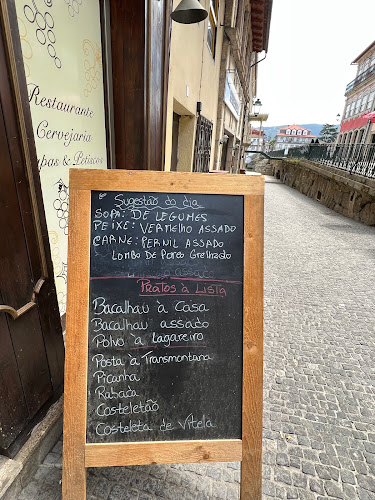 Restaurante
Cervejaria
Tapas & Petiscos
Sugestão do dia
SOPA: DE LEGUMES
PEIXE: VERMELHO ASSADO
CARNE: PERNIL ASSADO
LOMBO DE PORCO GRELHADO
PRATOS À LISTA
Bacalhau à Casa
Bacalhau assado
Polvo à Lagareiro
Posta à Transmontana
Picanha
Rabada
Costeletão
Costeleta de Vitela